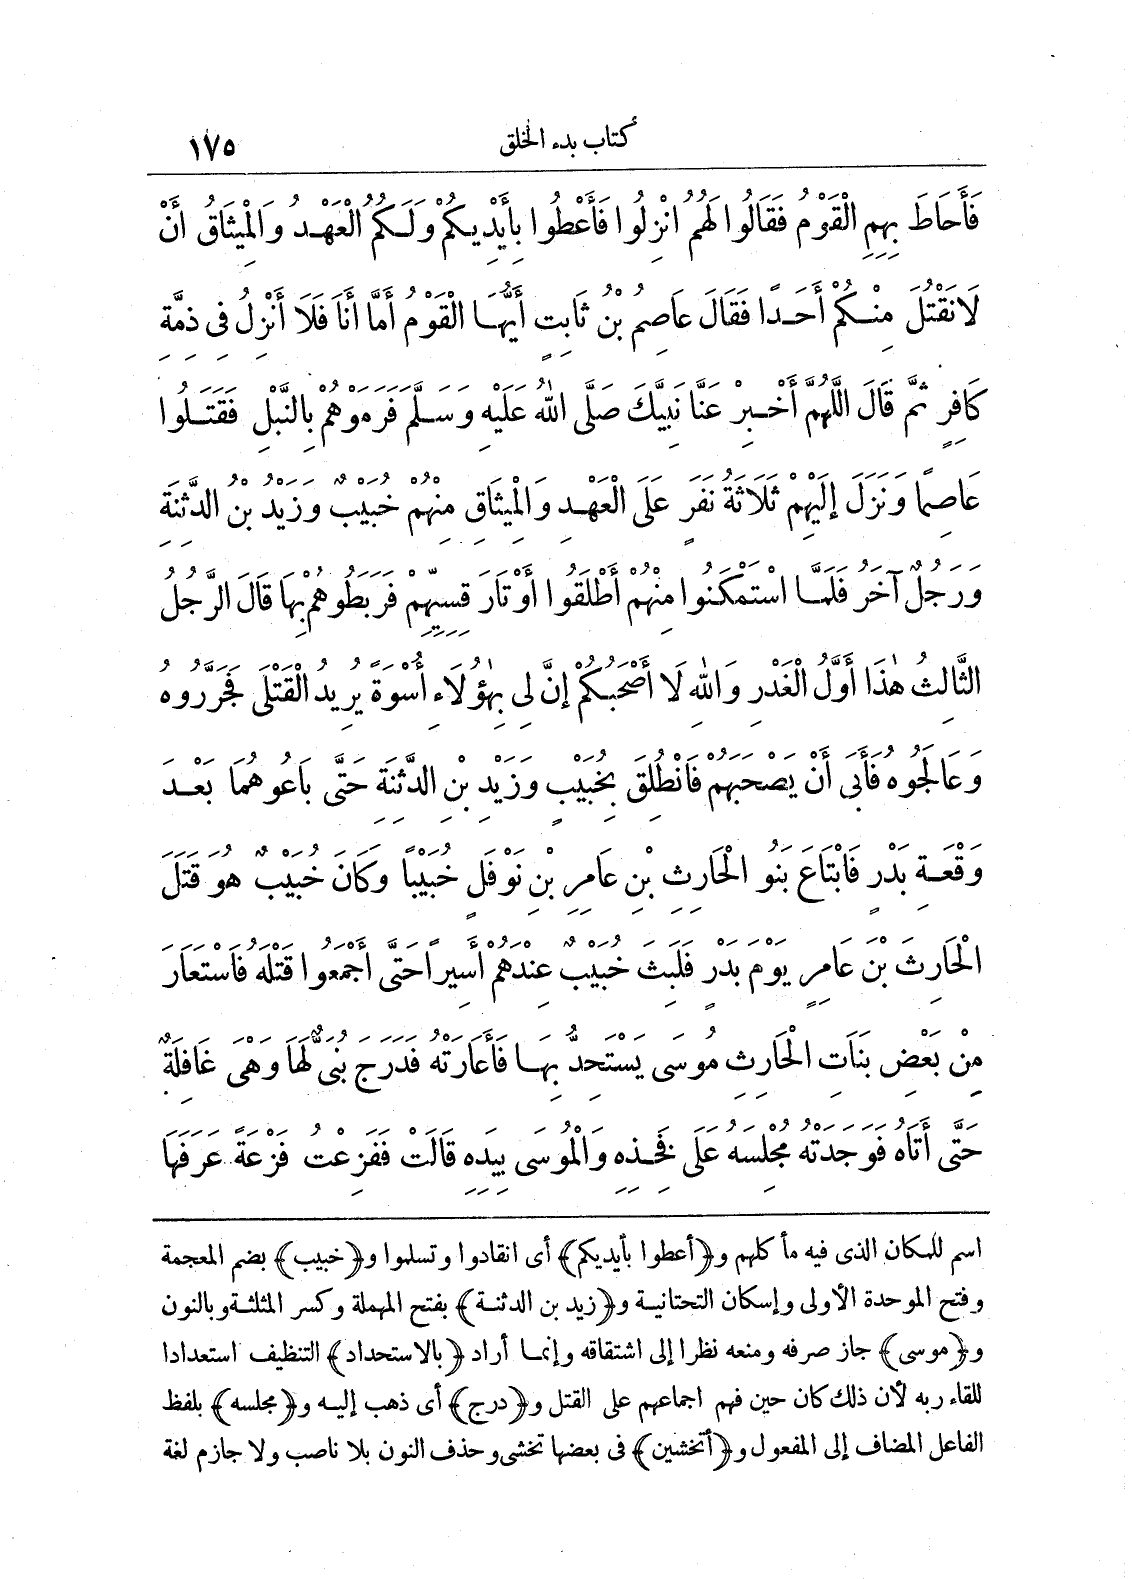 كتاب بدء الخلق ١٧٥
فَأَحَاطَ بِهِمِ الْقَوْمُ فَقَالُوا لَهُمُ انْزِلُوا فَأَعْطُوا بِأَيْدِيكُمْ وَلَكُمُ الْعَهْدُ وَالْمِيثَاقُ أَنْ
لَانَقْتُلَ مِنْكُمْ أَحَدًا فَقَالَ عَاصِمُ بْنُ ثَابِتٍ أَيُّهَا الْقَوْمُ أَمَّا أَنَا فَلَا أَنْزِلُ فِى ذِمَّةِ
كَافِرٍ ثُمَّ قَالَ اللَّهُمَّ أَخْبِرْ عَنَّا نَبِيَّكَ صَلَّى اللهُ عَلَيْهِ وَسَلَّمَ فَرَمَوْهُمْ بِالنَّبْلِ فَقَتَلُوا
عَاصِمًا وَنَزَلَ إِلَيْهِمْ ثَلَاثَةُ نَفَرٍ عَلَى الْعَهْدِ وَالْمِيثَاقِ مِنْهُمْ خُبَيْبٌ وَزَيْدُ بْنُ الدَّثِنَةِ
وَرَجُلٌ آخَرُ فَلَمَّا اسْتَمْكَنُوا مِنْهُمْ أَطْلَقُوا أَوْتَارَ قِسِيِّهِمْ فَرَبَطُوهُمْ بِهَا قَالَ الرَّجُلُ
الثَّالِثُ هٰذَا أَوَّلُ الْغَدْرِ وَاللهِ لَا أَصْحَبُكُمْ إِنَّ لِى بِهٰؤُلَاءِ أُسْوَةً يُرِيدُ الْقَتْلَى فَجَرَّرُوهُ
وَعَالَجُوهُ فَأَبَى أَنْ يَصْحَبَهُمْ فَانْطُلِقَ بِخُبَيْبٍ وَزَيْدِ بْنِ الدَّثِنَةِ حَتَّى بَاعُوهُمَا بَعْدَ
وَقْعَةِ بَدْرٍ فَابْتَاعَ بَنُو الْحَارِثِ بْنِ عَامِرِ بْنِ نَوْفَلٍ خُبَيْبًا وَكَانَ خُبَيْبٌ هُوَ قَتَلَ
الْحَارِثَ بْنَ عَامِرٍ يَوْمَ بَدْرٍ فَلَبِثَ خُبَيْبٌ عِنْدَهُمْ أَسِيرًا حَتَّى أَجْمَعُوا قَتْلَهُ فَاسْتَعَارَ
مِنْ بَعْضِ بَنَاتِ الْحَارِثِ مُوسَى يَسْتَحِدُّ بِهَا فَأَعَارَتْهُ فَدَرَجَ بُنَىٌّ لَهَا وَهْىَ غَافِلَةٌ
حَتَّى أَتَاهُ فَوَجَدَتْهُ مُجْلِسَهُ عَلَى فَخِذِهِ وَالْمُوسَى بِيَدِهِ قَالَتْ فَفَزِعْتُ فَزْعَةً عَرَفَهَا
اسم للمكان الذى فيه مأكلهم و﴿أعطوا بأيديكم﴾ أى انقادوا وتسلموا و﴿خبيب﴾ بضم المعجمة
وفتح الموحدة الأولى وإسكان التحتانية و﴿زيد بن الدثنة﴾ بفتح المهملة وكسر المثلثة وبالنون
و﴿موسى﴾ جاز صرفه ومنعه نظرا إلى اشتقاقه وإنما أراد ﴿بالاستحداد﴾ التنظيف استعدادا
للقاء ربه لأن ذلك كان حين فهم اجماعهم على القتل و﴿درج﴾ أى ذهب إليه و﴿مجلسه﴾ بلفظ
الفاعل المضاف إلى المفعول و﴿أتخشين﴾ فى بعضها تخشى وحذف النون بلا ناصب ولا جازم لغة